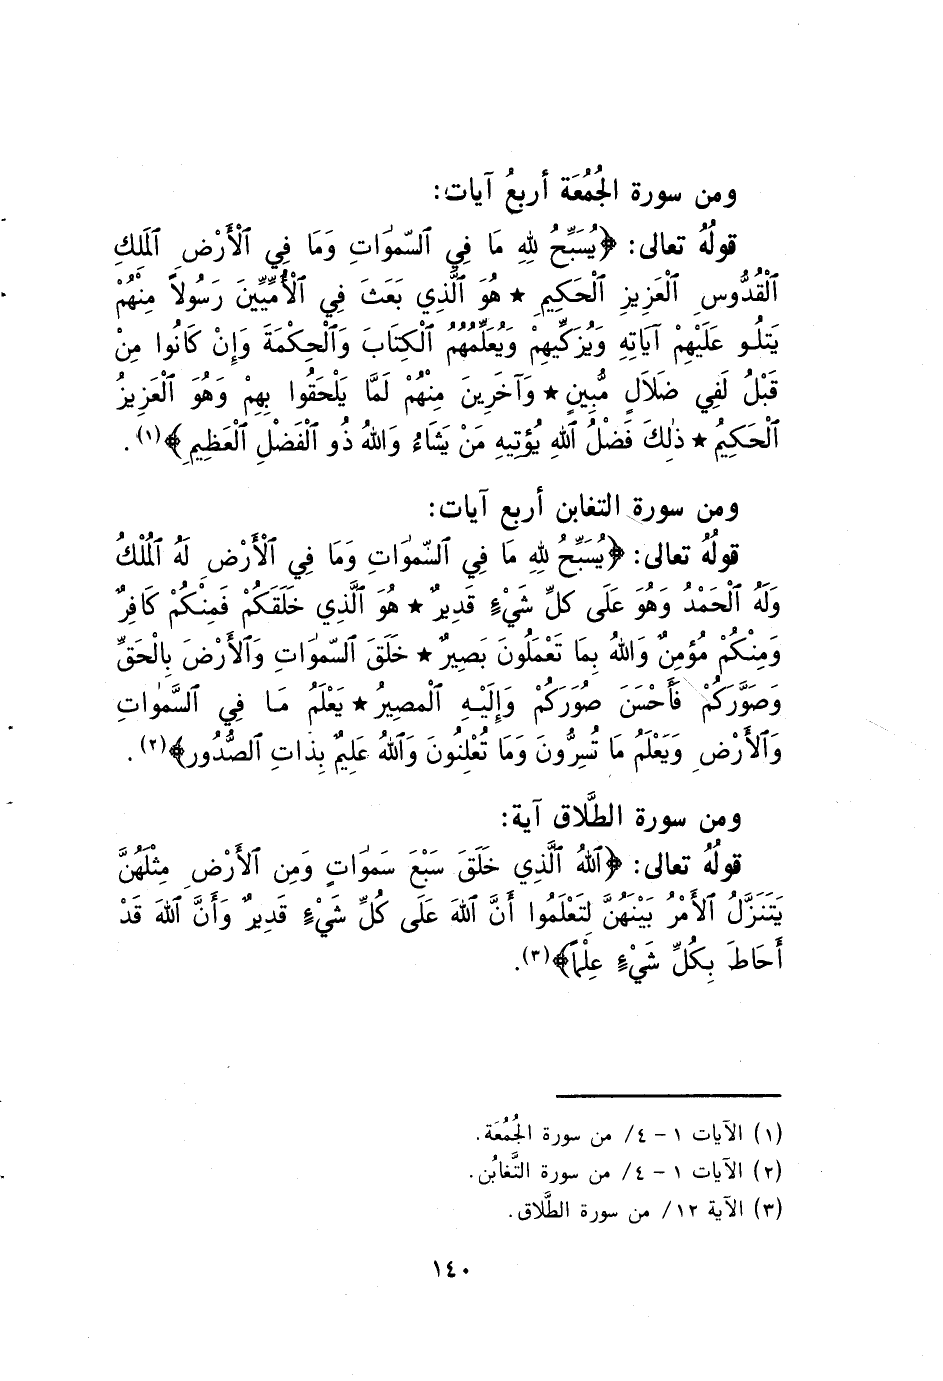 ومن سورة الجُمُعَة أربعُ آيات:
قولُهُ تعالى: ﴿يُسَبِّحُ لِلهِ مَا فِي ٱلسَّموَاتِ وَمَا فِي ٱلْأَرْضِ ٱلْمَلِكِ
ٱلْقُدُّوسِ ٱلْعَزِيزِ ٱلْحَكِيمِ ★ هُوَ ٱلَّذِي بَعَثَ فِي ٱلْأُمِّيِّينَ رَسُولاً مِنْهُمْ
يَتْلُو عَلَيْهِمْ آيَاتِهِ وَيُزَكِّيهِمْ وَيُعَلِّمُهُمُ ٱلْكِتَابَ وَٱلْحِكْمَةَ وَإِنْ كَانُوا مِنْ
قَبْلُ لَفِي ضَلَالٍ مُّبِينٍ ★ وَآخَرِينَ مِنْهُمْ لَمَّا يَلْحَقُوا بِهِمْ وَهُوَ ٱلْعَزِيزُ
ٱلْحَكِيمُ ★ ذٰلِكَ فَضْلُ ٱللهِ يُؤْتِيهِ مَنْ يَشَاءُ وَاللهُ ذُو ٱلْفَضْلِ ٱلْعَظِيمِ﴾(١).
ومن سورة التغابن أربع آيات:
قولُهُ تعالى: ﴿يُسَبِّحُ لِلهِ مَا فِي ٱلسَّموَاتِ وَمَا فِي ٱلْأَرْضِ لَهُ ٱلْمُلْكُ
وَلَهُ ٱلْحَمْدُ وَهُوَ عَلَى كلِّ شَيْءٍ قَدِيرٌ ★ هُوَ ٱلَّذِي خَلَقَكُمْ فَمِنْكُمْ كَافِرٌ
وَمِنْكُمْ مُؤْمِنٌ وَاللهُ بِمَا تَعْمَلُونَ بَصِيرٌ ★ خَلَقَ ٱلسَّموَاتِ وَٱلْأَرْضَ بِالْحَقِّ
وَصَوَّرَكُمْ فَأَحْسَنَ صُوَرَكُمْ وَإِلَيْهِ ٱلْمصِيرُ ★ يَعْلَمُ مَا فِي ٱلسَّموَاتِ
وَٱلْأَرْضِ وَيَعْلَمُ مَا تُسِرُّونَ وَمَا تُعْلِنُونَ وَٱللهُ عَلِيمٌ بِذَاتِ ٱلصُّدُورِ﴾(٢).
ومن سورة الطَّلاق آية:
قولُهُ تعالى: ﴿ٱللهُ ٱلَّذِي خَلَقَ سَبْعَ سَموَاتٍ وَمِن ٱلأَرْضِ مِثْلَهُنَّ
يَتَنَزَّلُ ٱلأَمْرُ بَيْنَهُنَّ لِتَعْلَمُوا أَنَّ ٱللهَ عَلَى كُلِّ شَيْءٍ قَدِيرٌ وَأَنَّ ٱللهَ قَدْ
أَحَاطَ بِكُلِّ شَيْءٍ عِلْماً﴾(٣).
(١) الآيات ١ – ٤/ من سورة الجُمُعَة.
(٢) الآيات ١ – ٤/ من سورة التَّغابُن.
(٣) الآية ١٢/ من سورة الطَّلاق.
١٤٠